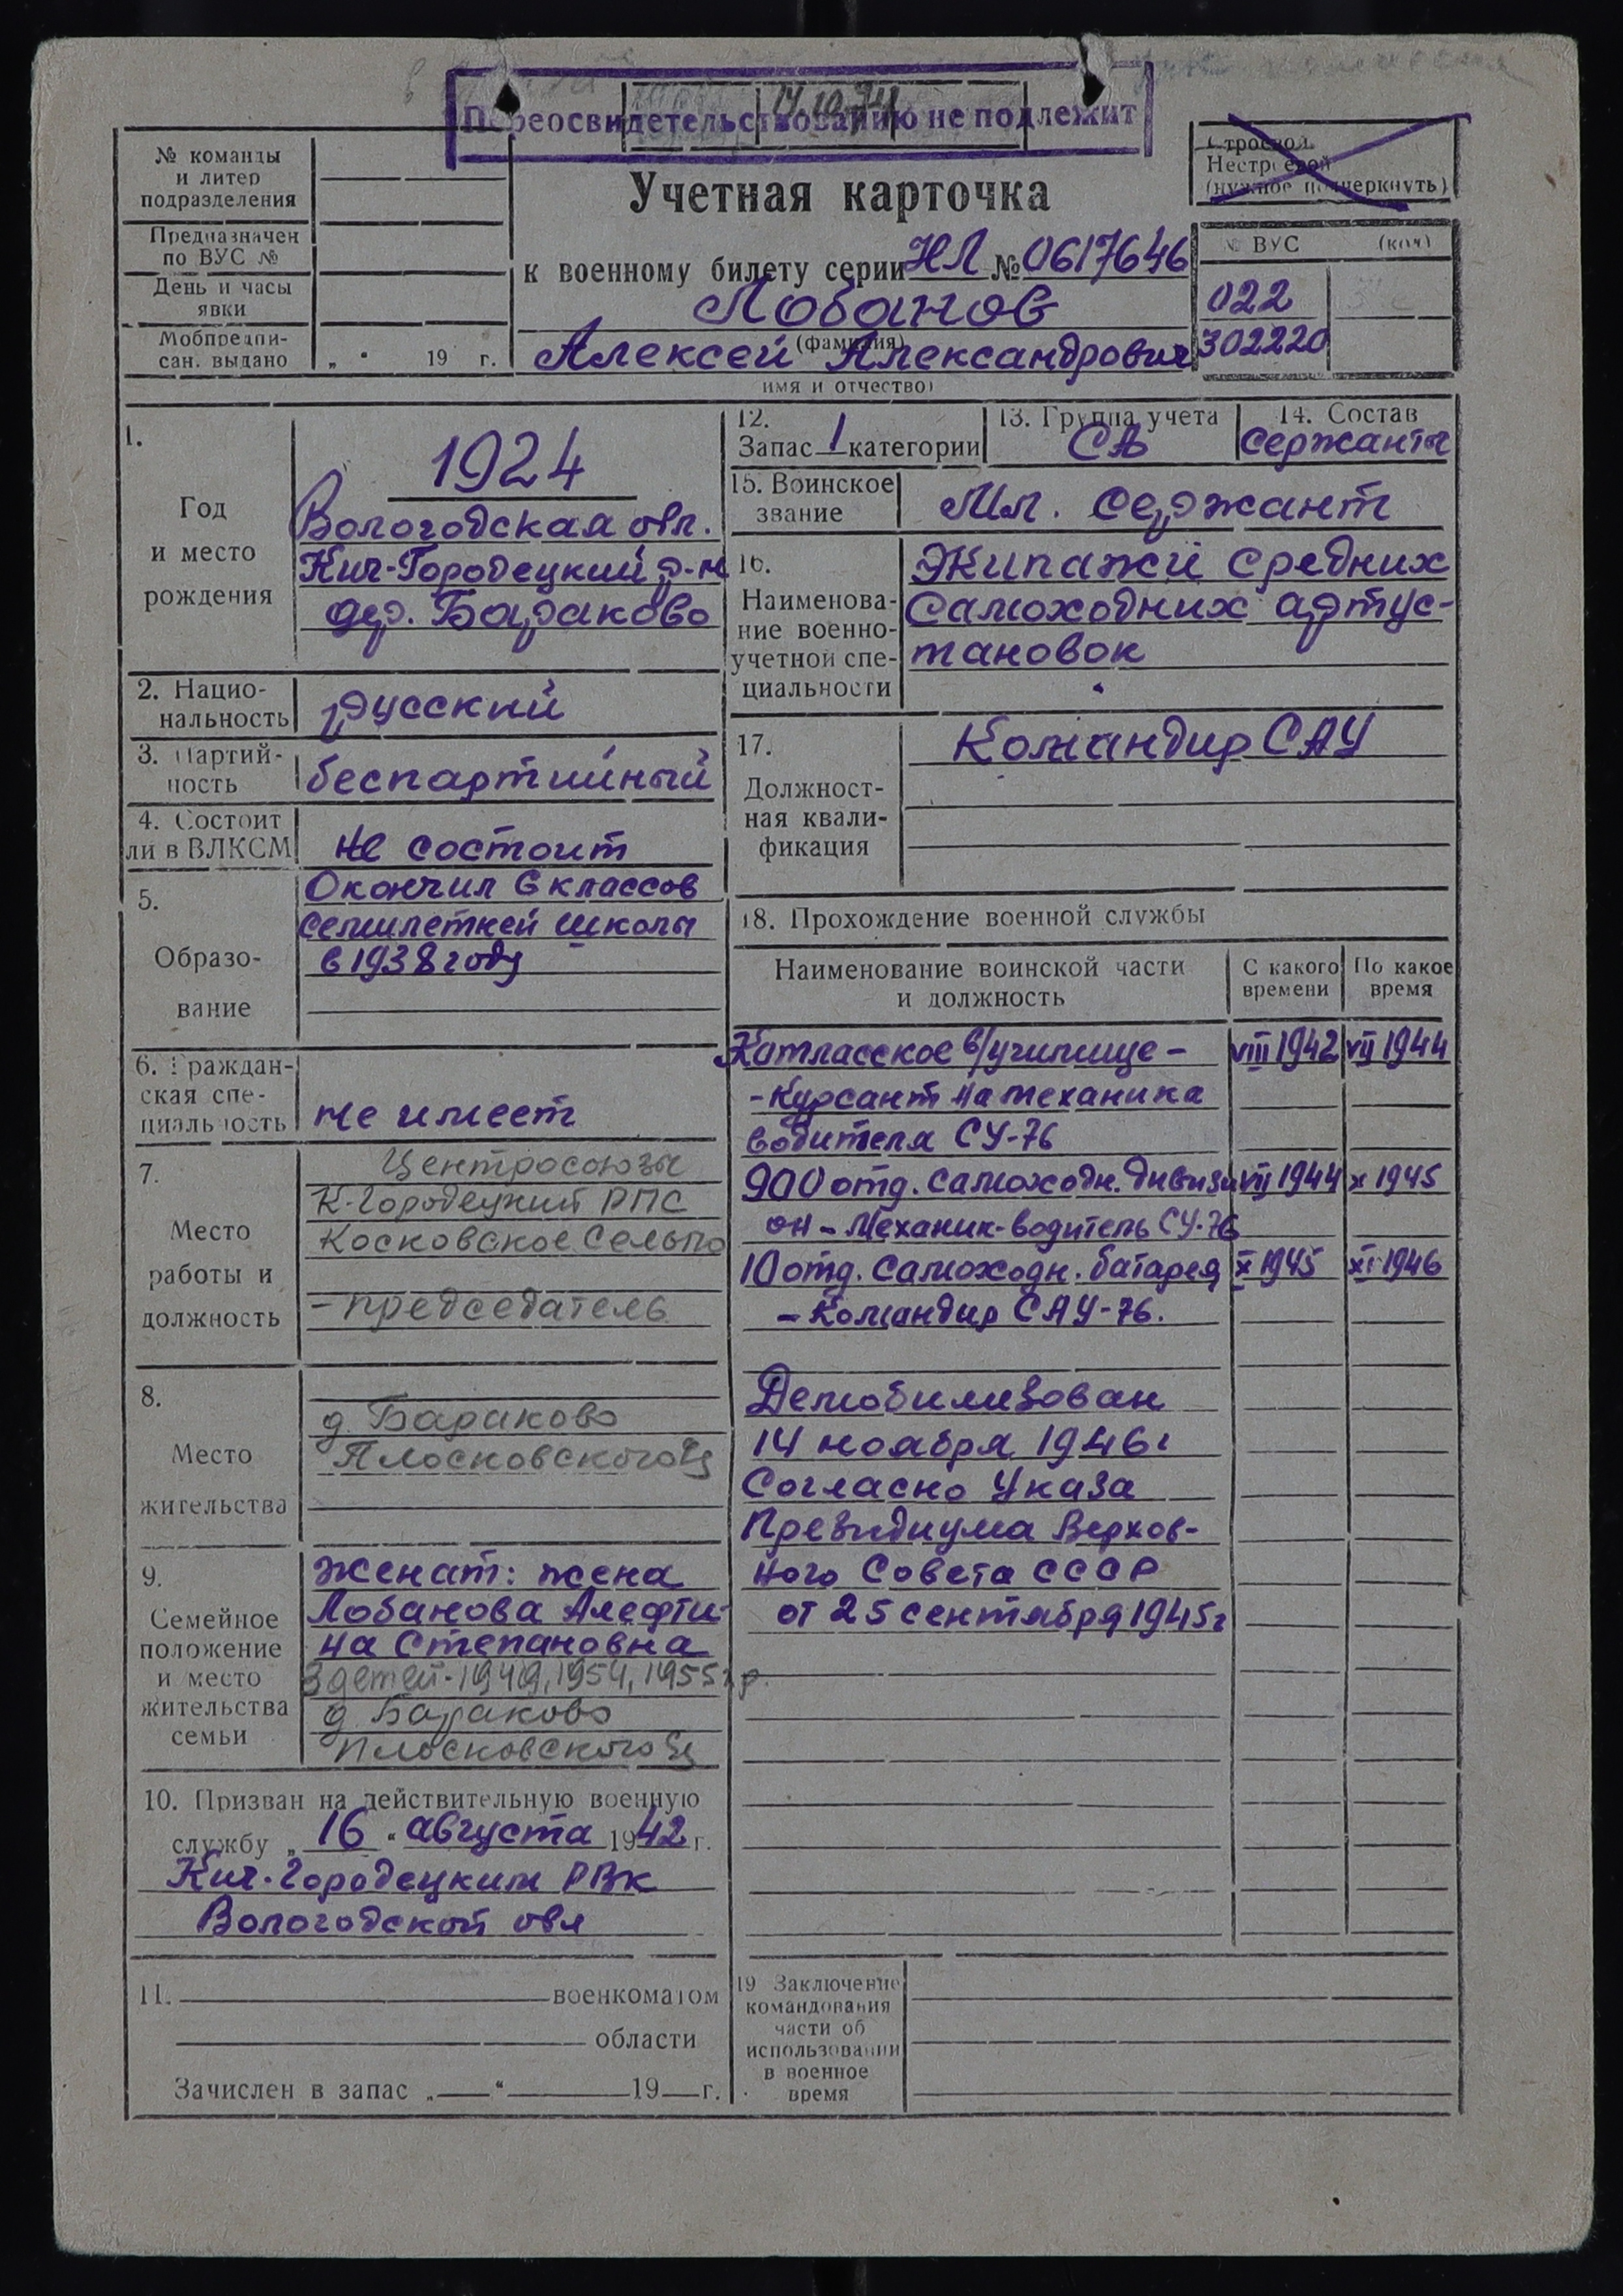 14.10.74
Переосвидетельствованию не подлежит
№ команды
и литер
подразделения
Предназначен
по ВУС №
День и часы
явки
Мобпредпи-
сан. выдано „ “ 19 г.
Строевой
Нестроевой
(нужное подчеркнуть)
Учетная карточка
к военному билету серии НЛ № 0617646
Лобанов
(фамилия)
Алексей Александрович
имя и отчество)
№ ВУС (код)
022
302220
1.
Год
и место
рождения
1924
Вологодская обл.
Кич-Городецкий р-н
дер. Бараково
2. Нацио-
нальность
русский
3. Партий-
ность
беспартийный
4. Состоит
ли в ВЛКСМ
Не состоит
5.
Образо-
вание
Окончил 6 классов
семилетней школы
в 1938 году
6. Граждан-
ская спе-
циальность
не имеет
7.
Место
работы и
должность
Центросоюзы
К-Городецкий РПС
Косковское Сельпо
- председатель
8.
Место
жительства
д Бараково
Плосковского
9.
Семейное
положение
и место
жительства
семьи
женат: жена
Лобанова Алефти-
на Степановна
3 детей-1949, 1954, 1955 г р.
д Бараково
Плосковского
10. Призван на действительную военную
службу „ 16 “ августа 1942 г.
Кич-Городецким РВК
Вологодской обл
11. военкоматом
области
Зачислен в запас „ “ 19 г.
12.
Запас 1 категории
13. Группа учета
СА
14. Состав
Сержанты
15. Воинское
звание
Мл. Сержант
16.
Наименова-
ние военно-
учетной спе-
циальности
Экипажи средних
Самоходних артус-
тановок
17.
Должност-
ная квали-
фикация
Командир САУ
18. Прохождение военной службы
Наименование воинской части
и должность
С какого
времени
По какое
время
Котласское в/училище - VIII 1942 VII 1944
- Курсант на механика
водителя СУ-76
900 отд. самоходн. дивизи VII 1944 X 1945
он - Механик-водитель СУ-76
10 отд. самоходн. батарея X 1945 XI 1946
- Командир САУ-76.
Демобилизован
14 ноября 1946 г
Согласно Указа
Президиума Верхов-
ного Совета СССР
от 25 сентября 1945 г
19 Заключение
командования
части об
использовании
в военное
время